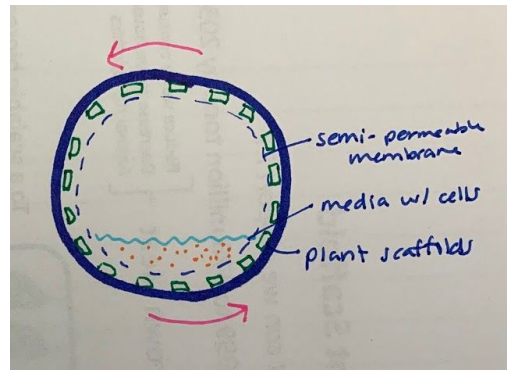 semi-permeable
membrane
media w/ cells
plant scaffolds